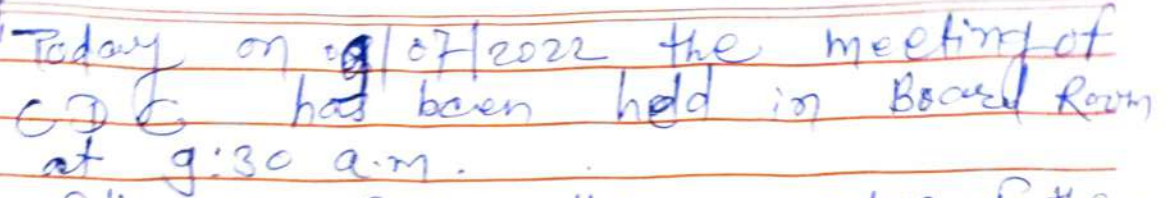 Today on 09/07/2022 the meeting of
CDC has been held in Board Room
at 9:30 a.m.